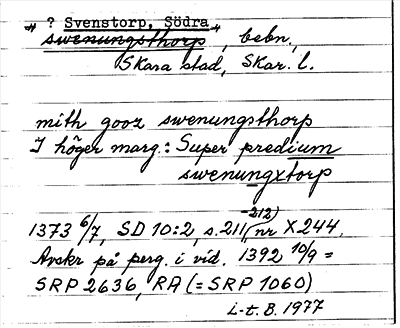 " ? Svenstorp, Södra "
swenungsthorp, bebn.,
Skara stad, Skar. l.
mith gooz swenungsthorp
I höger marg.: Super predium
swenungxtorp
1373 6/7, SD 10:2, s. 211(-212) nr X 244.
Avskr på perg. i vid. 1392 10/9 =
SRP 2636, RA (= SRP 1060)
L-t. B. 1977